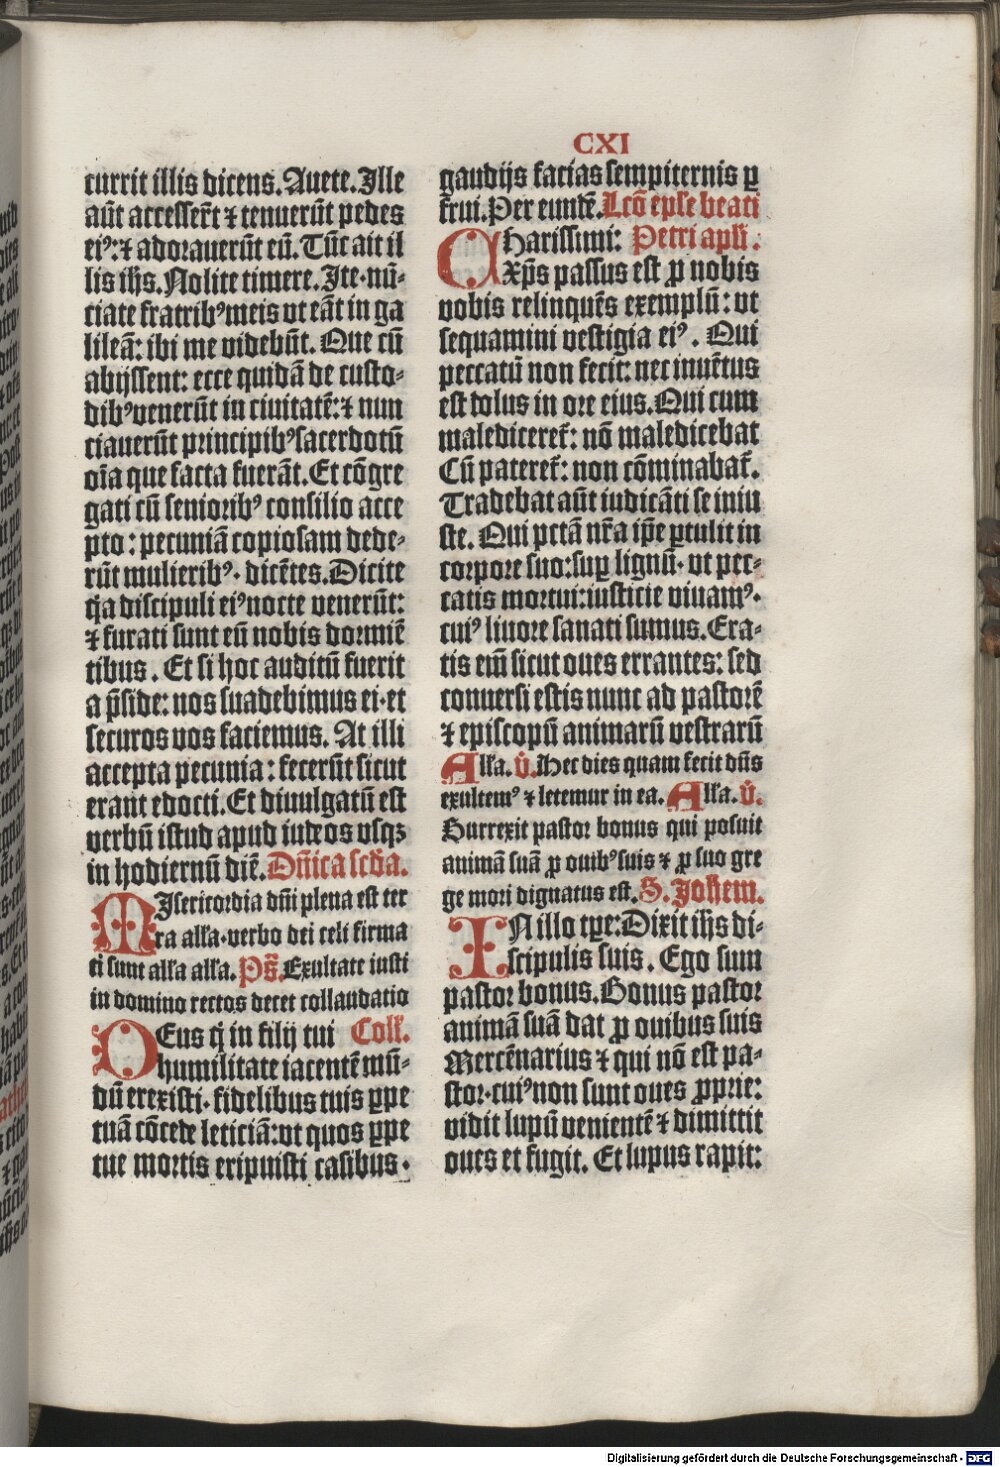 CXI
currit illis dicens. Auete. Ille
aūt accesser̄t ⁊ tenuerūt pedes
eiꝰ: ⁊ adorauerūt eū. Tūc ait il
lis ih̄s. Nolite timere. Ite · nū-
ciate fratribꝰ meis vt eāt in ga
lileā: ibi me videbūt. Que cū
abijssent: ecce quidā de custo-
dibꝰ venerūt in ciuitatē: ⁊ nun
ciauerūt principibꝰ sacerdotū
oīa que facta fuerāt. Et cōgre
gati cū senioribꝰ consilio acce
pto: pecuniā copiosam dede-
rūt mulieribꝰ · dicētes. Dicite
q̄a discipuli eiꝰ nocte venerūt:
⁊ furati sunt eū nobis dormiē
tibus. Et si hoc auditū fuerit
a p̄side: nos suadebimus ei · et
securos vos faciemus. At illi
accepta pecunia: fecerūt sicut
erant edocti. Et diuulgatū est
verbū istud apud iudeos vsqꝫ
in hodiernū diē. Dn̄ica scd̄a.
MIsericordia dn̄i plena est ter
ra all'a · verbo dei celi firma
ti sunt all'a all'a. Ps̄. Exultate iusti
in domino rectos decet collaudatio
DEus q̄ in filij tui Coll'.
humilitate iacentē mū-
dū erexisti · fidelibus tuis ꝑpe
tuā cōcede leticiā: vt quos ꝑpe
tue mortis eripuisti casibus ·
gaudijs facias sempiternis ꝑ
frui. Per eundē. Lcō ep̄le beati
CHarissimi: Petri apl'i.
Xp̄s passus est ꝓ nobis
vobis relinquēs exemplū: vt
sequamini vestigia eiꝰ. Qui
peccatū non fecit: nec inuētus
est dolus in ore eius. Qui cum
malediceret̄: nō maledicebat
Cū pateret̄: non cōminabat̄.
Tradebat aūt iudicāti se iniu
ste. Qui pctā nr̄a ip̄e ꝑtulit in
corpore suo: suꝑ lignū · vt pec-
catis mortui: iusticie viuamꝰ ·
cuiꝰ liuore sanati sumus. Era-
tis em̄ sicut oues errantes: sed
conuersi estis nunc ad pastorē
⁊ episcopū animarū vestrarū
All'a. V̄. Hec dies quam fecit dn̄s
exultemꝰ ⁊ letemur in ea. All'a. V̄.
Surrexit pastor bonus qui posuit
animā suā ꝓ ouibꝰ suis ⁊ ꝓ suo gre
ge mori dignatus est. S. Joh̄em.
IN illo tꝑe: Dixit ih̄s di-
scipulis suis. Ego sum
pastor bonus. Bonus pastor
animā suā dat ꝓ ouibus suis
Mercēnarius ⁊ qui nō est pa-
stor · cuiꝰ non sunt oues ꝓprie:
vidit lupū venientē ⁊ dimittit
oues et fugit. Et lupus rapit:
Digitalisierung gefördert durch die Deutsche Forschungsgemeinschaft - DFG